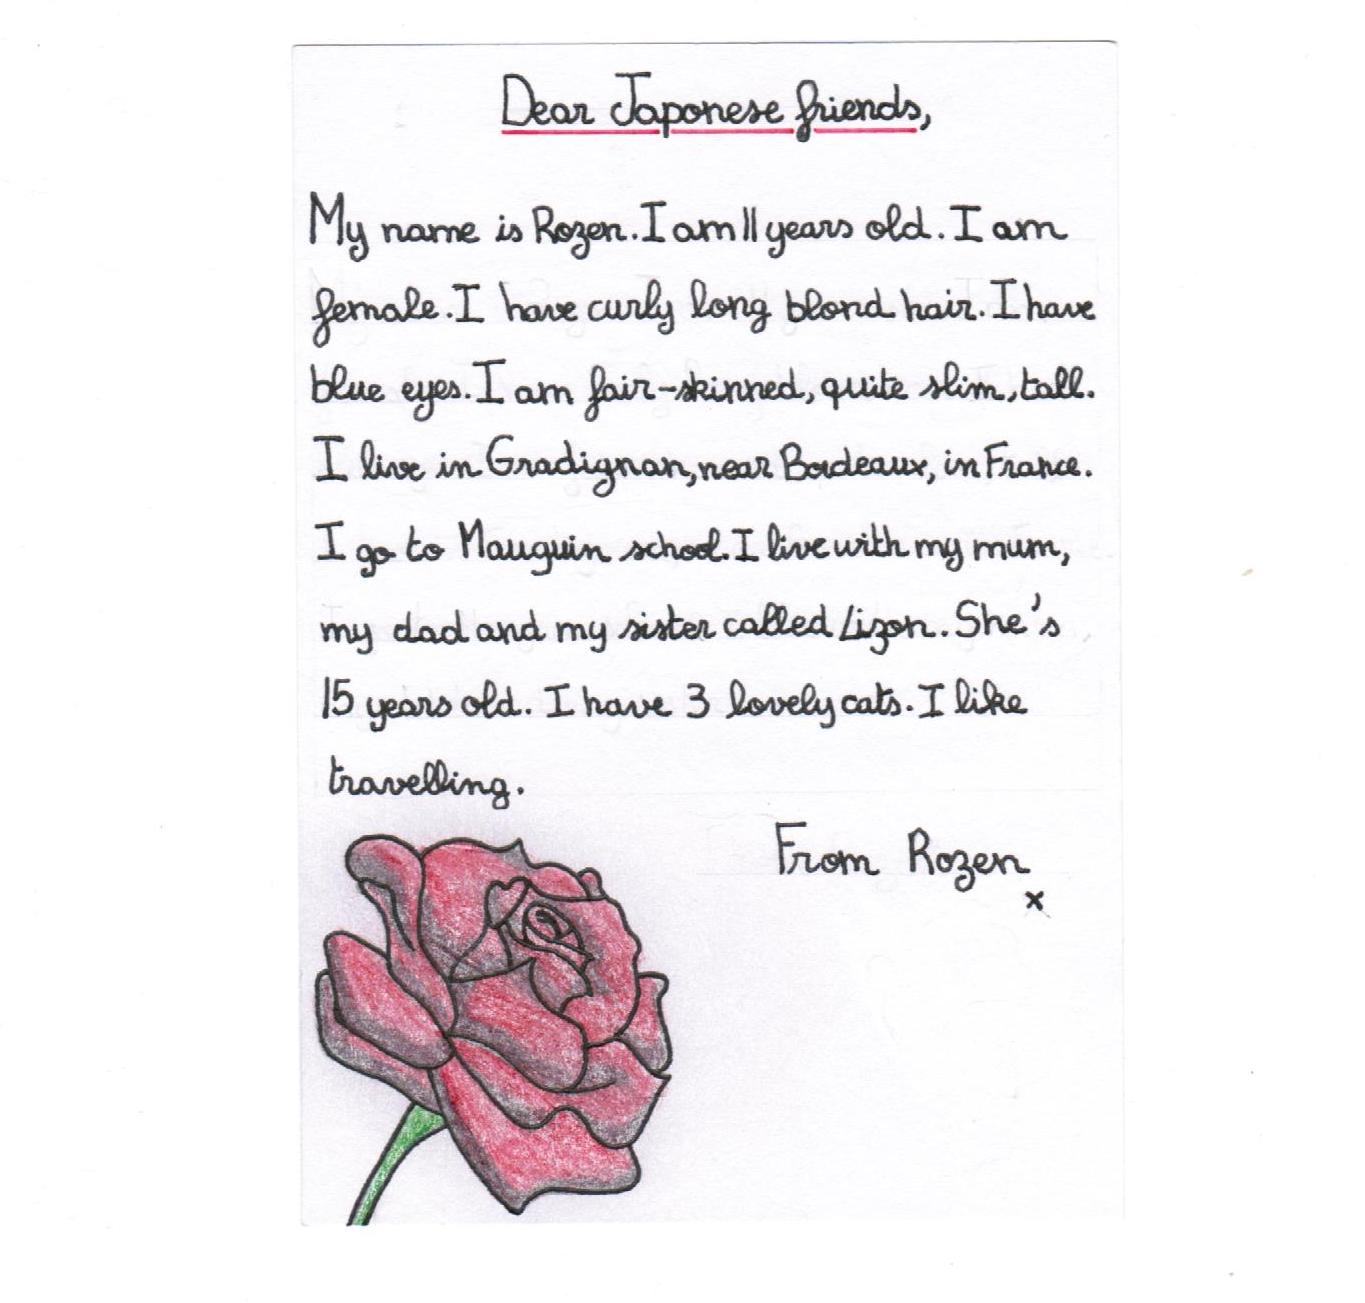 Dear Japonese friends,
My name is Rozen. I am 11 years old. I am
female. I have curly long blond hair. I have
blue eyes. I am fair-skinned, quite slim, tall.
I live in Gradignan, near Bordeaux, in France.
I go to Mauguin school. I live with my mum,
my dad and my sister called Lizon. She's
15 years old. I have 3 lovely cats. I like
travelling.
From Rozen
x